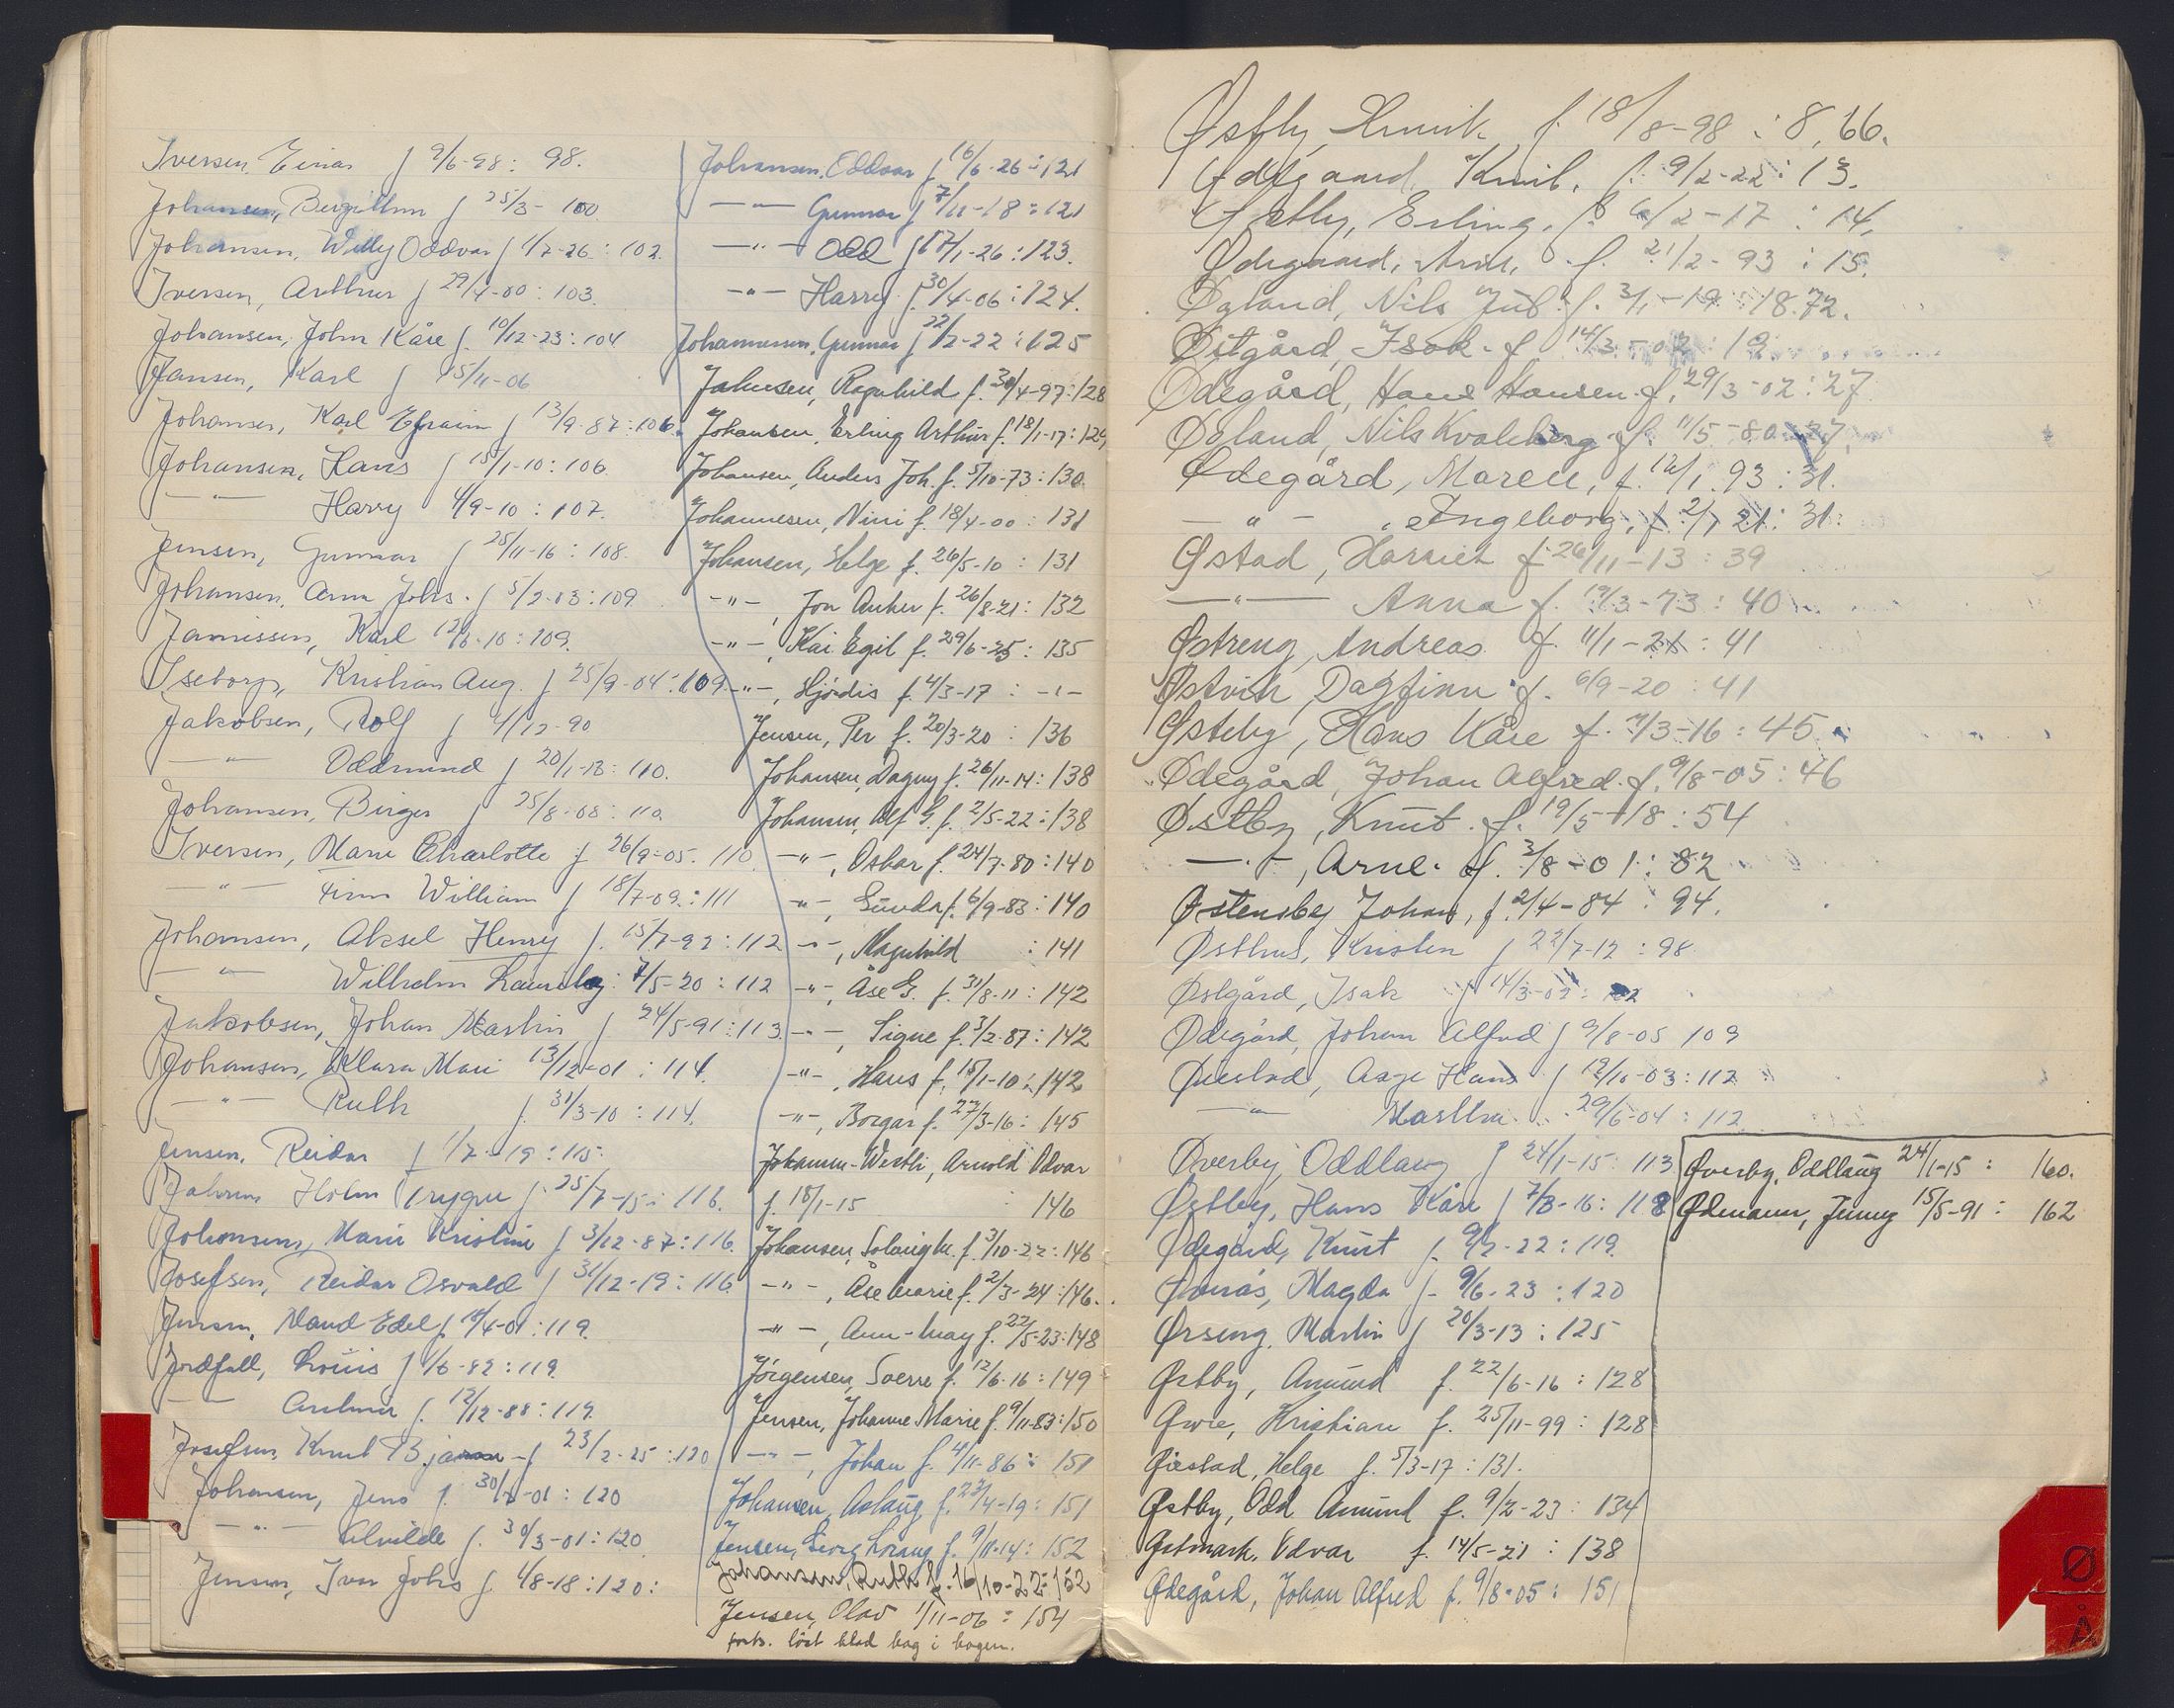 Iversen, Einar f 9/6-98: 98.
Johansen, Bergithon f 25/3- 100
Johansen, Willy Oddvar f 1/7-26: 102.
Iversen, Arthur f 29/4-00: 103.
Johansen, John Kåre f. 10/12-23: 104
Jansen, Karl f 15/11-06
Johansen, Karl Efraim f 13/9-87: 106.
Johansen, Hans f 15/1-10: 106.
— " — Harry 4/9-10: 107.
Jensen, Gunnar f 25/11-16: 108.
Johansen, Arna Johs. f 5/2-03: 109
Jamissen, Karl 12/6-10: 109.
Iseborg, Kristian Aug. f 25/9-04: 109
Jakobsen, Rolf f 4/12-90
— " — Oddmund f 20/1-13: 110.
Johansen, Birger f 25/8-08: 110
Iversen, Marie Charlotte f 26/9-05. 110
— " — Finn William f 18/7-09: 111
Johansen, Aksel Henry f. 15/7-92: 112
— " — Wilhelm Lauritz: 7/5-20: 112
Jakobsen, Johan Martin f 24/5-91: 113
Johansen, Klara Mari 13/12-01: 114.
— " — Ruth f. 31/3-10: 114.
Jensen, Reidar f 1/7-19: 115.
Jahren Holm Trygve f. 25/7-15: 116.
Johansen, Marie Kristine f 3/12-87: 116.
Josefsen, Reidar Osvald f 31/12-19: 116
Jensen, Maud Edel f. 10/4-01: 119.
Jordfall, Louis f 1/6-82: 119
— " — f. 12/12-88: 119.
Josefsen, Knut Bjarne f 23/2-25: 120
Johansen, Jens f. 30/7-01: 120
— " — Alvilde f. 30/3-01: 120
Jensen, Ivar Johs f. 4/8-18: 120:
Johansen, Oddvar f 16/6-26: 121
— " — Gunnar f 7/11-18: 121
— " — Odd f 17/1-26: 123.
— " — Harry f. 30/4-06: 124.
Johannessen, Gunnar f 22/2-22: 125
Johnsen, Ragnhild f. 30/4-97: 128
Johansen, Erling Arthur f. 18/1-17: 129
Johansen, Anders Joh. f. 5/10-73: 130
Johannesen, Nini f. 18/4-00: 131
Johansen, Helge f. 26/5-10: 131
— " —, Jon Anker f. 26/8-21: 132
— " —, Kai Egil f. 29/6-25: 135
— " —, Hjördis f. 4/3-17: - " -
Jensen, Per f. 20/3-20: 136
Johansen, Dagny f. 26/11-14: 138
Johansen, Alf G. f. 2/5-22: 138
— " —, Oskar f. 24/7-80: 140
— " —, Gunda f. 6/9-83: 140
— " —, Ragnhild : 141
— " —, Åse G. f. 31/8-11: 142
— " —, Signe f. 3/2-87: 142
— " —, Hans f. 15/1-10: 142
— " —, Borgar f. 27/3-16: 145
Johansen-Westli, Arnold Odvar
f. 18/1-15 146
Johansen, Solveig M. f. 3/10-22: 146
— " —, Åse Marie f. 2/3-24: 146.
— " —, Ann-May f. 22/5-23: 148
Jörgensen, Sverre f. 12/6-16: 149
Jensen, Johanne Marie f. 9/11-83: 150
— " —, Johan f. 4/11-86: 151
Johansen, Aslaug f. 23/4-19: 151
Jensen, Georg f. 9/11-14: 152
Johansen, Ruth f. 16/10-22: 152
Jensen, Olav 1/11-06: 154
forts. löst blad bag i bogen.
Østby, Henrik f. 18/8-98: 8, 66.
Ødegaard, Knut. f. 9/2-22: 13.
Østby, Erling. f. 6/2-17: 14.
Ødegaard, Arne. f. 21/2-93: 15.
Øgland, Nils Jul. f. 3/1-19: 18.72.
Østgård, Isak. f 14/3-02: 19
Ødegård, Hans Hansen. f. 29/3-02: 27
Øgland, Nils Kvaleberg f. 11/5-80: 27.
Ødegård, Maren, f. 12/1 93: 31.
— " — Ingeborg, f. 2/1 21: 31.
Østad, Harriet f. 26/11-13: 39
— " — Anna f. 19/3-73: 40
Østreng, Andreas f. 11/1-21: 41
Østvik, Dagfinn f. 6/9-20: 41
Østeby, Hans Kåre f. 7/3-16: 45
Ødegård, Johan Alfred. f. 9/8-05: 46
Østby, Knut. f. 19/5-18: 54
— " —, Arne. f. 3/8-01: 82
Østensby Johan, f. 2/4-84: 94.
Østhus, Kristen f 22/7-12: 98
Østgård, Isak f 14/3-02: 102
Ødegård, Johan Alfred f 9/8-05 109
Øiestad, Aage Hans f 12/10-03: 112
— " — Martha 29/6-04: 112
Øverby, Oddlaug f 24/1-15: 113
Østbey, Hans Kåre f 7/3-16: 118
Ødegård, Knut f. 9/2-22: 119.
Ømås, Magda f. 9/6-23: 120
Ørseng, Martin f 20/3-13: 125
Østby, Amund f. 22/6-16: 128
Øwre, Kristian f. 25/11-99: 128
Øiestad, Helge f. 5/3-17: 131.
Østby, Odd Amund f. 9/2-23: 134
Østmark, Odvar f. 14/5-21: 138
Ødegård, Johan Alfred f. 9/8-05: 151
Øverby, Oddlaug 24/1-15: 160.
Ødmann, Jenny 15/5-91: 162
Ø
Å